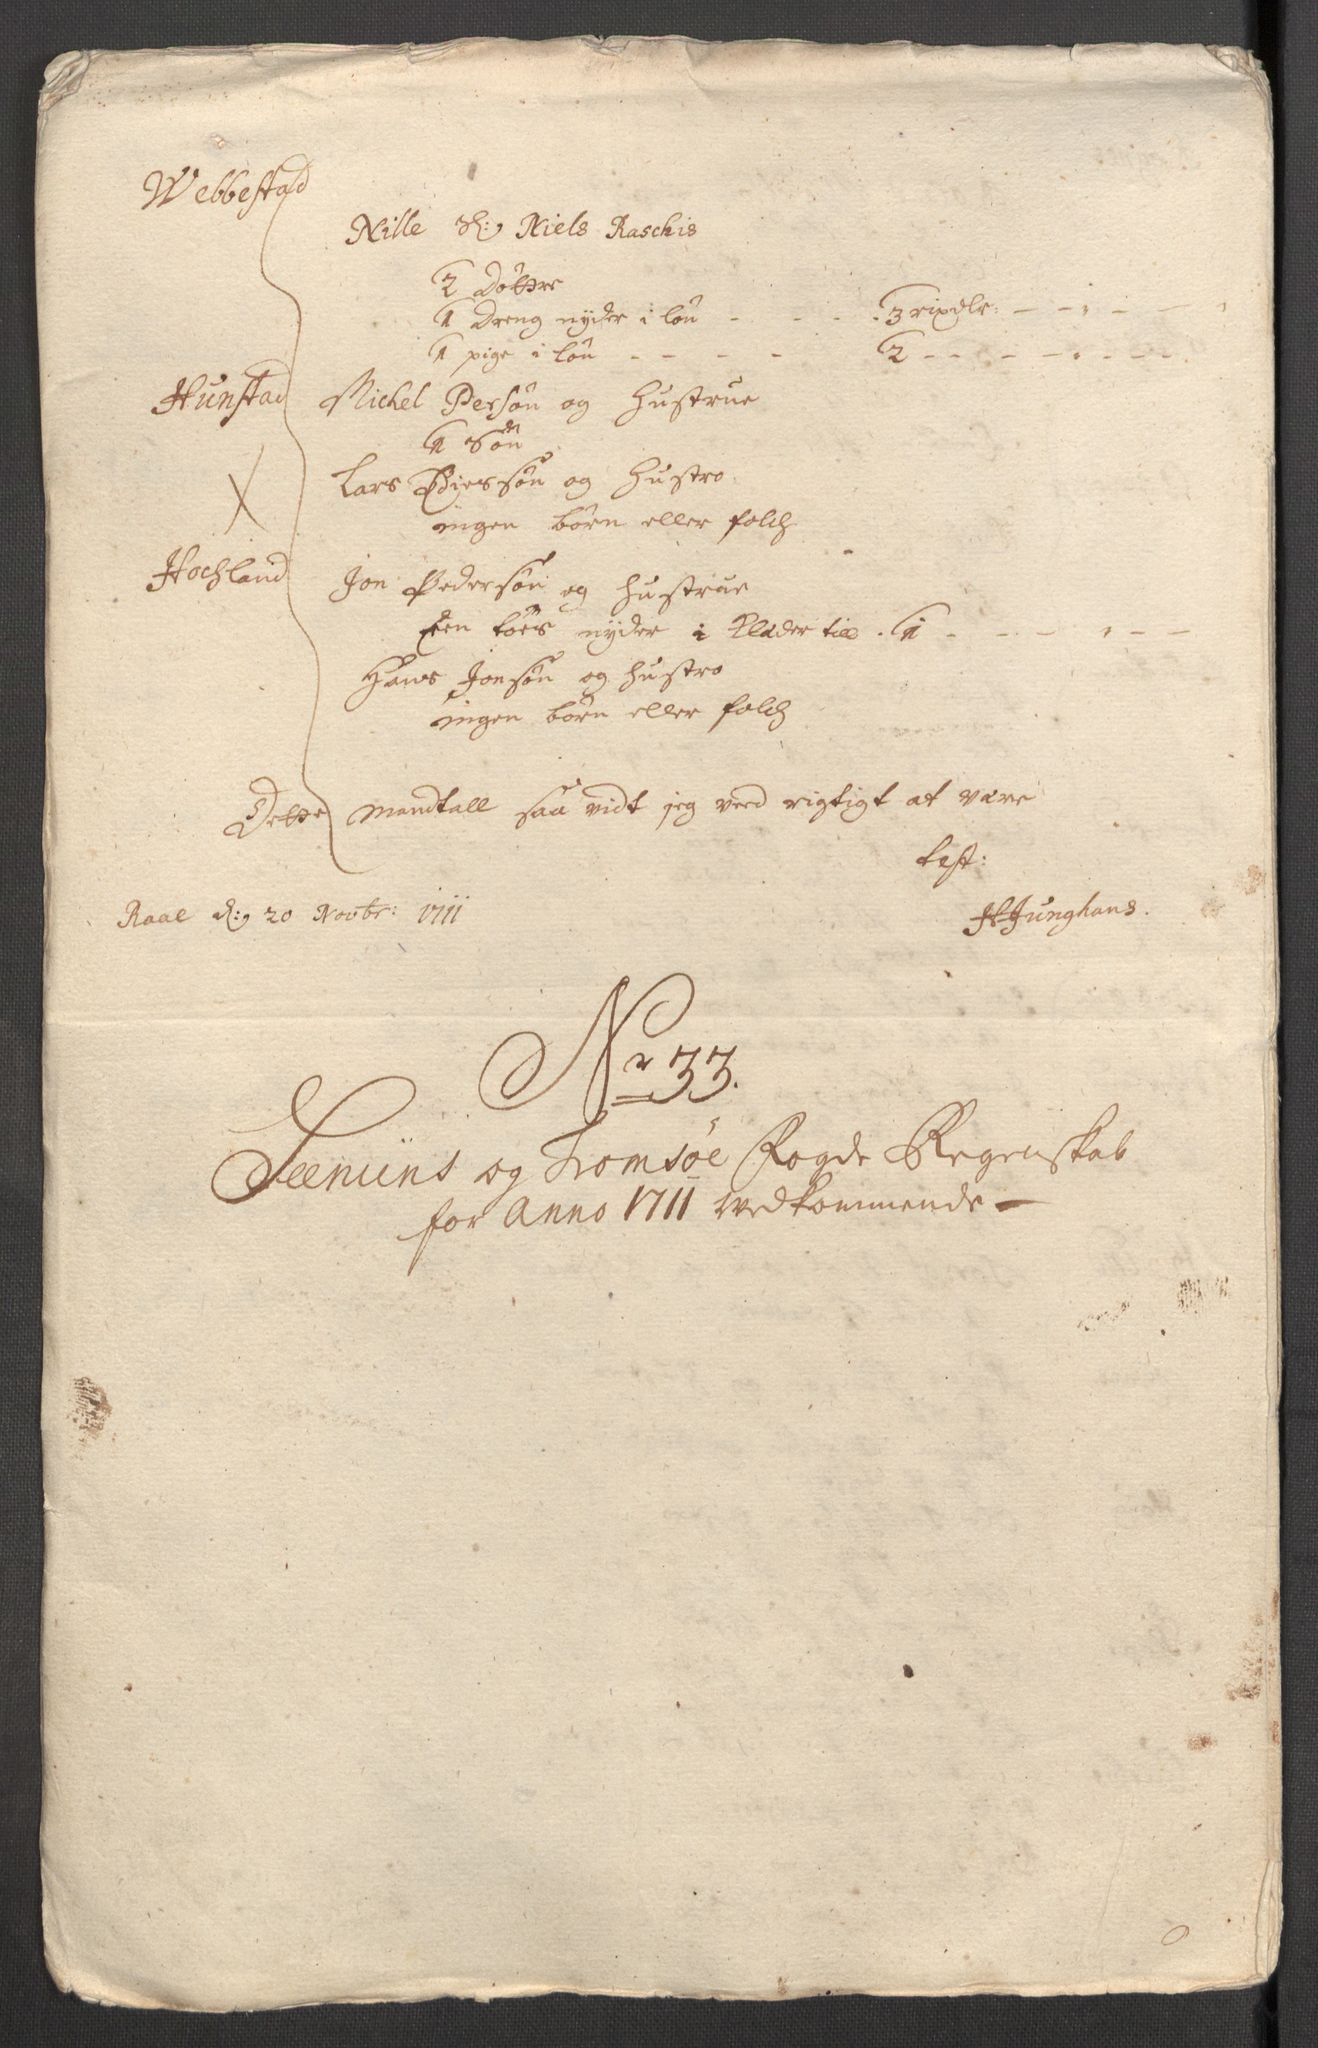 Webbestad
Nille Sl: Niels Raschis
2 Døttre
1 Dreng nyder i løn - - - - 3 rixdlr: - - - - -
1 pige i løn - - - - 2 - - - - - - -
Hunstad Michel Persøn og Hustrue
1 Søn
X Lars søn og Hustro
ingen børn eller folch
Hochland Jon Pedersøn og hustrue
Een tøes nyder i Klæder till . 1 - - - - - -
Hans Jonsøn og hustro
ingen børn eller folch
Dette mandtall saa vidt jeg veed rigtigt at være
test:
Raae d: 20 Novbr: 1711 HJunghans.
Nr 33.
Seeniens og Tromsøe Fogde Regenskab
for Anno 1711 vedkommende -